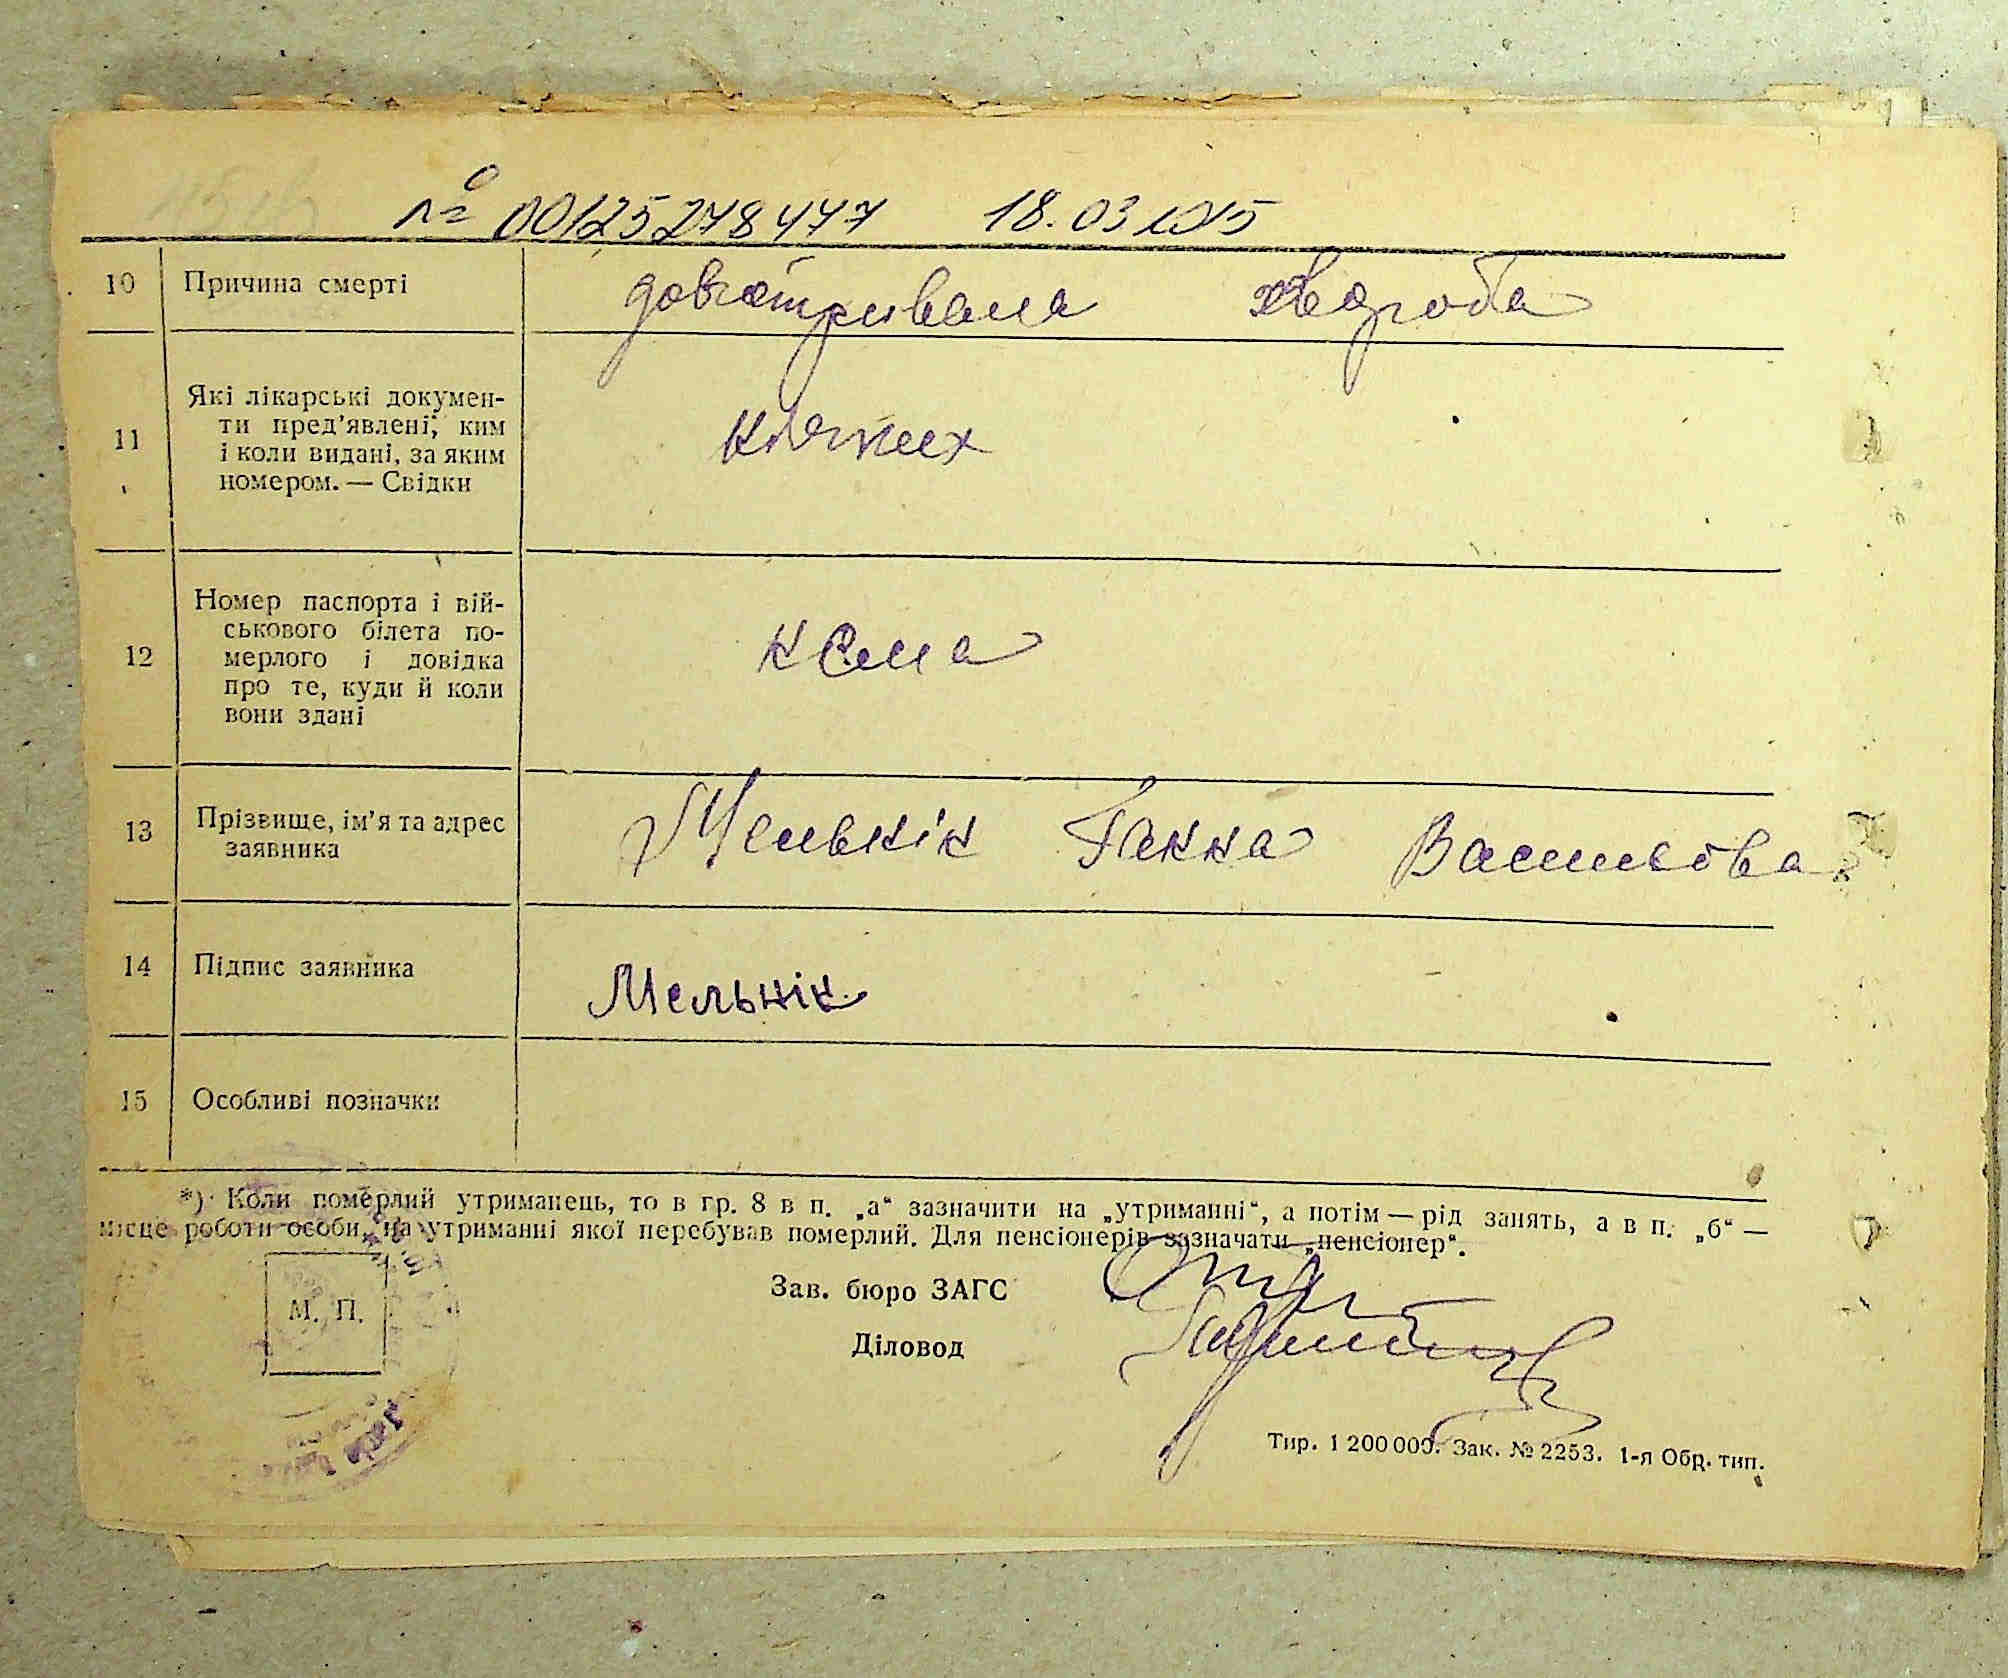 № 00125278447 18.03.2015
10 Причина смерті довготривала хвороба
11 Які лікарські докумен-
ти пред'явлені, ким
і коли видані, за яким
номером. — Свідки
ніяких
12 Номер паспорта і вій-
ськового білета по-
мерлого і довідка
про те, куди й коли
вони здані
нема
13 Прізвище, ім'я та адрес
заявника
Мельнік Ганна Васильова
14 Підпис заявника Мельнік
15 Особливі позначки
*) Коли померлий утриманець, то в гр. 8 в п. „а“ зазначити на „утриманні“, а потім — рід занять, а в п. „б“ —
місце роботи особи, на утриманні якої перебував померлий. Для пенсіонерів зазначати „пенсіонер“.
Зав. бюро ЗАГС
М. П.
Діловод
Тир. 1 200 000. Зак. № 2253. 1-я Обр. тип.